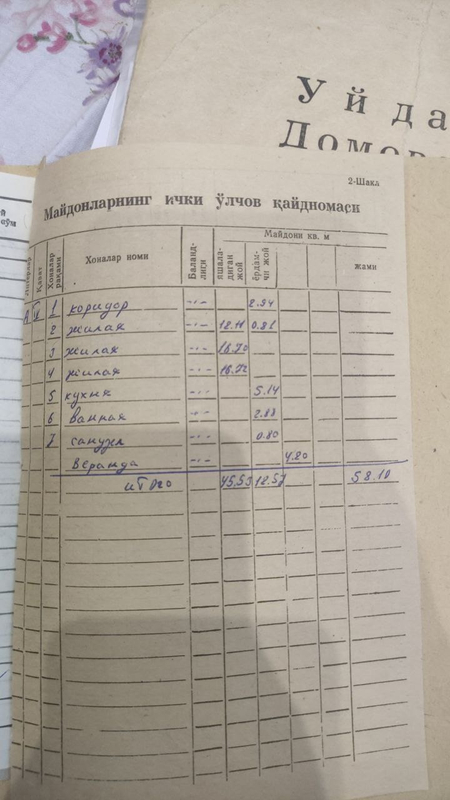 Уй да
Домов
2-Шакл
Майдонларнинг ички ўлчов қайдномаси
Қават
Хоналар рақами
Хоналар номи
Баландлиги
Майдони кв. м
яшаладиган жой
ёрдамчи жой
жами
1 коридор -"- 2.94
2 жилая -"- 0.81
3 жилая -"- 16.70
4 жилая -"- 16.72
5 кухня -"- 5.14
6 ванная -"- 2.88
7 санузл -"- 0.80
веранда -"- 4.20
итого 45.53 12.57 58.10